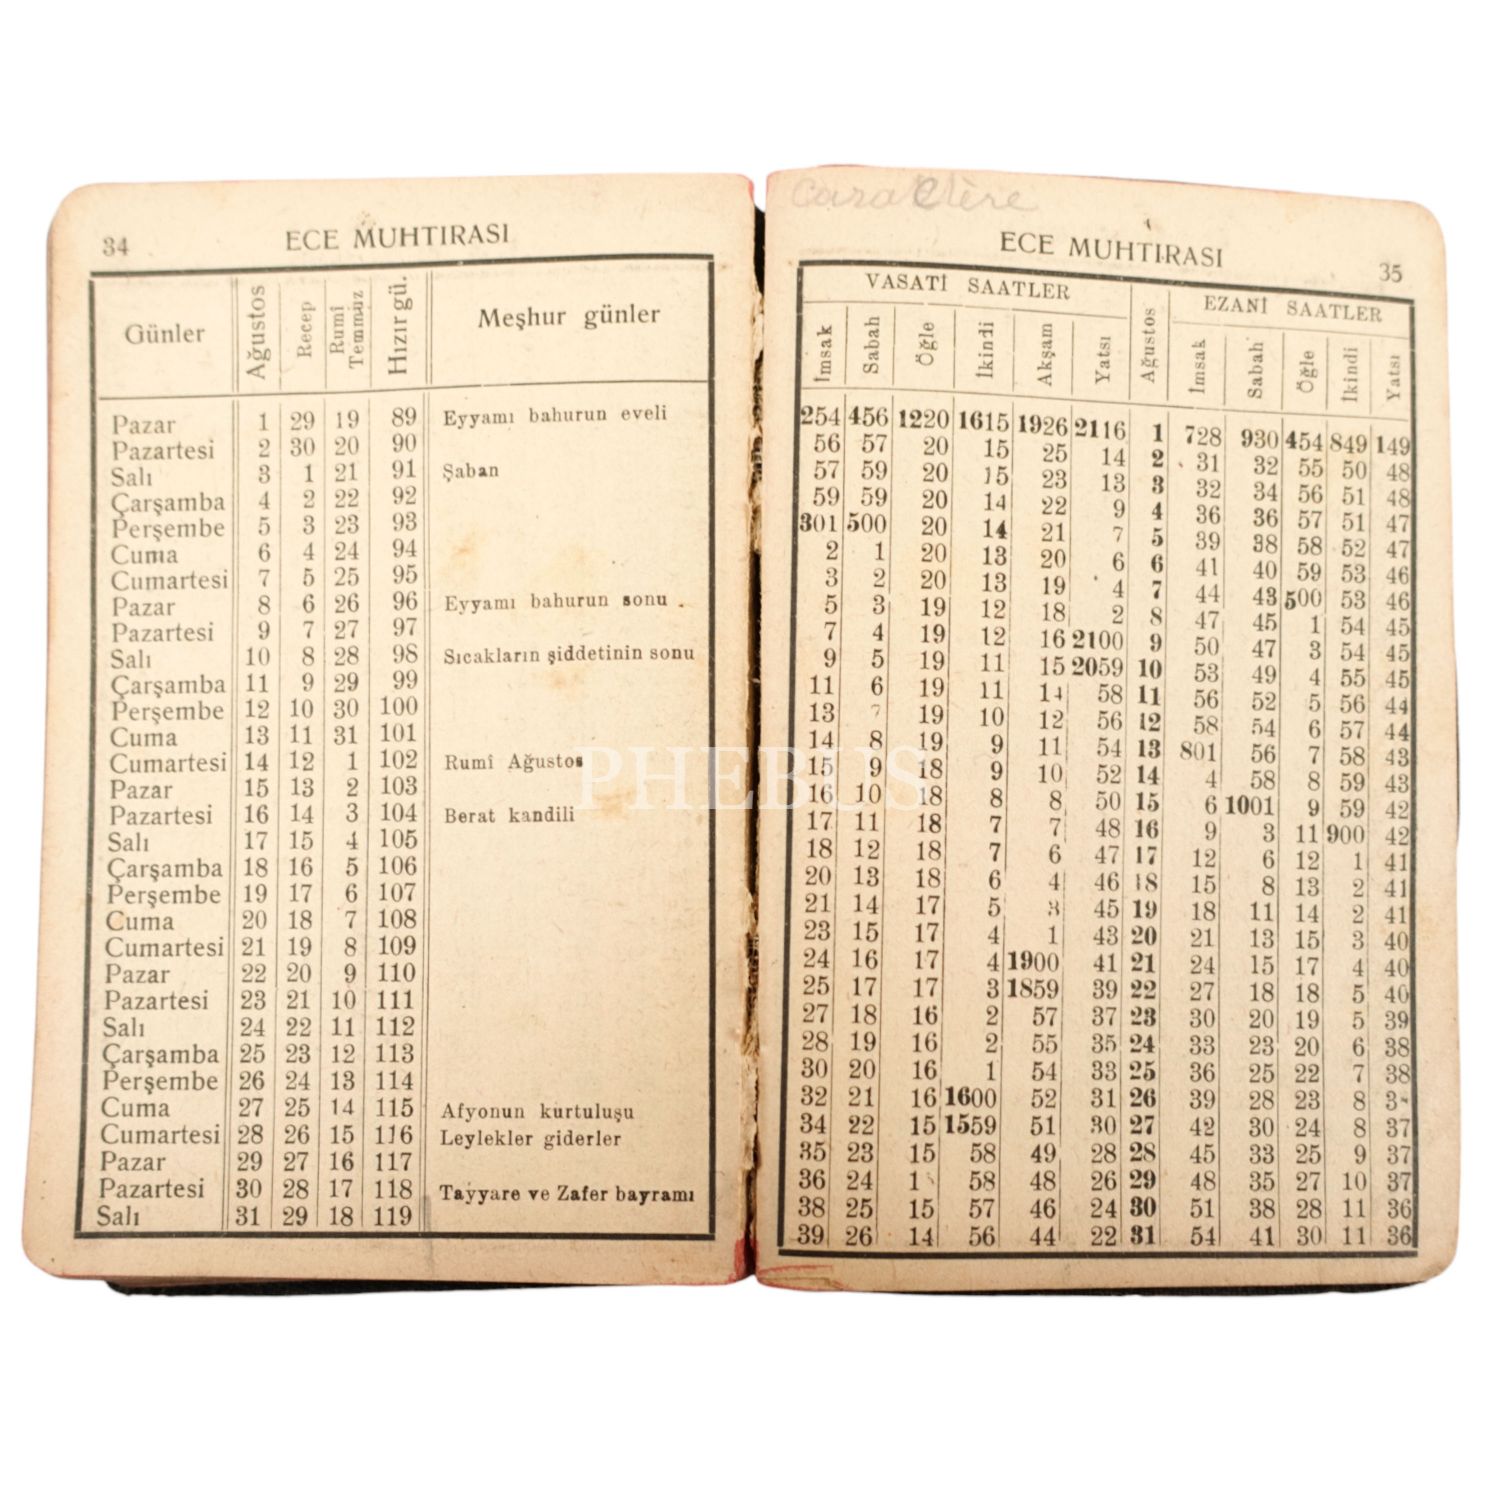 34 ECE MUHTIRASI
Günler Ağustos Recep Rumî Temmuz Hızır gü. Meşhur günler
Pazar 1 29 19 89 Eyyamı bahurun eveli
Pazartesi 2 30 20 90
Salı 3 1 21 91 Şaban
Çarşamba 4 2 22 92
Perşembe 5 3 23 93
Cuma 6 4 24 94
Cumartesi 7 5 25 95
Pazar 8 6 26 96 Eyyamı bahurun sonu
Pazartesi 9 7 27 97
Salı 10 8 28 98 Sıcakların şiddetinin sonu
Çarşamba 11 9 29 99
Perşembe 12 10 30 100
Cuma 13 11 31 101
Cumartesi 14 12 1 102 Rumî Ağustos
Pazar 15 13 2 103
Pazartesi 16 14 3 104 Berat kandili
Salı 17 15 4 105
Çarşamba 18 16 5 106
Perşembe 19 17 6 107
Cuma 20 18 7 108
Cumartesi 21 19 8 109
Pazar 22 20 9 110
Pazartesi 23 21 10 111
Salı 24 22 11 112
Çarşamba 25 23 12 113
Perşembe 26 24 13 114
Cuma 27 25 14 115 Afyonun kurtuluşu
Cumartesi 28 26 15 116 Leylekler giderler
Pazar 29 27 16 117
Pazartesi 30 28 17 118 Tayyare ve Zafer bayramı
Salı 31 29 18 119
caractère
ECE MUHTIRASI 35
VASATİ SAATLER Ağustos EZANİ SAATLER
İmsak Sabah Öğle İkindi Akşam Yatsı İmsak Sabah Öğle İkindi Yatsı
254 456 1220 1615 1926 2116 1 728 930 454 849 149
56 57 20 15 25 14 2 31 32 55 50 48
57 59 20 15 23 13 3 32 34 56 51 48
59 59 20 14 22 9 4 36 36 57 51 47
301 500 20 14 21 7 5 39 38 58 52 47
2 1 20 13 20 6 6 41 40 59 53 46
3 2 20 13 19 4 7 44 43 500 53 46
5 3 19 12 18 2 8 47 45 1 54 45
7 4 19 12 16 2100 9 50 47 3 54 45
9 5 19 11 15 2059 10 53 49 4 55 45
11 6 19 11 14 58 11 56 52 5 56 44
13 7 19 10 12 56 12 58 54 6 57 44
14 8 19 9 11 54 13 801 56 7 58 43
15 9 18 9 10 52 14 4 58 8 59 43
16 10 18 8 8 50 15 6 1001 9 59 42
17 11 18 7 7 48 16 9 3 11 900 42
18 12 18 7 6 47 17 12 6 12 1 41
20 13 18 6 4 46 18 15 8 13 2 41
21 14 17 5 3 45 19 18 11 14 2 41
23 15 17 4 1 43 20 21 13 15 3 40
24 16 17 4 1900 41 21 24 15 17 4 40
25 17 17 3 1859 39 22 27 18 18 5 40
27 18 16 2 57 37 23 30 20 19 5 39
28 19 16 2 55 35 24 33 23 20 6 38
30 20 16 1 54 33 25 36 25 22 7 38
32 21 16 1600 52 31 26 39 28 23 8
34 22 15 1559 51 30 27 42 30 24 8 37
35 23 15 58 49 28 28 45 33 25 9 37
36 24 58 48 26 29 48 35 27 10 37
38 25 15 57 46 24 30 51 38 28 11 36
39 26 14 56 44 22 31 54 41 30 11 36
PHEBUS